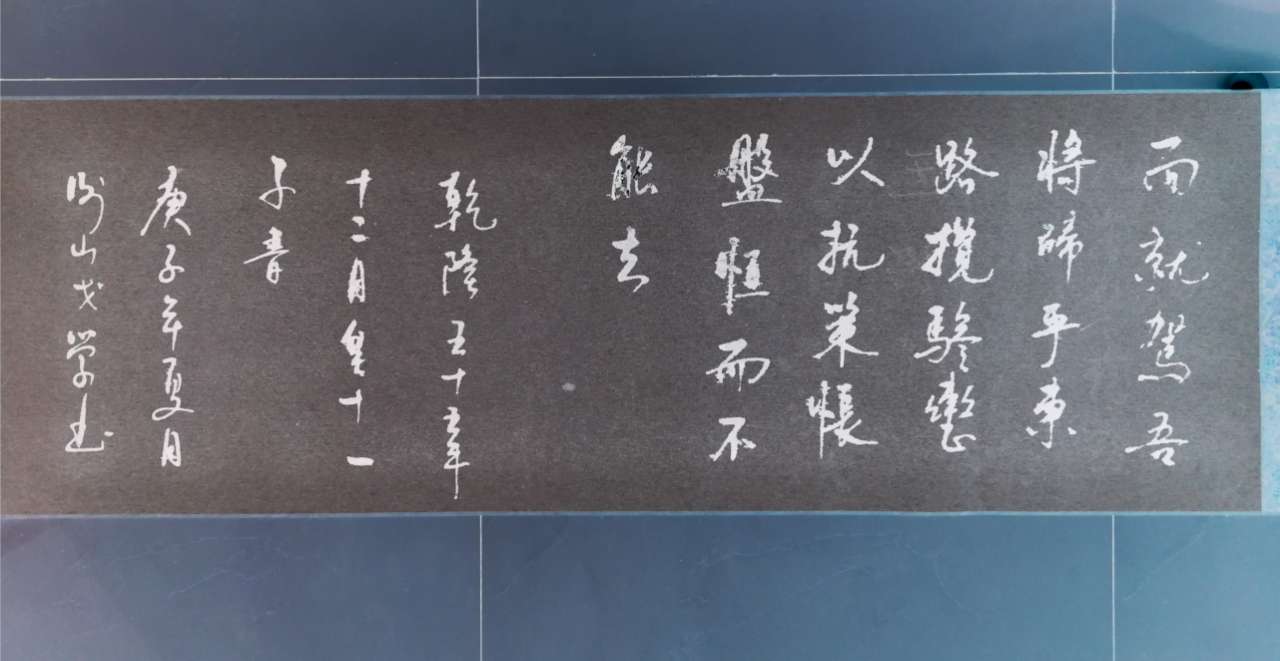 而就駕吾
將歸乎東
路攬騑轡
以抗策悵
盤桓而不
能去
乾隆五十五年
十二月皇十一
子書
庚子年夏月
山戈学书